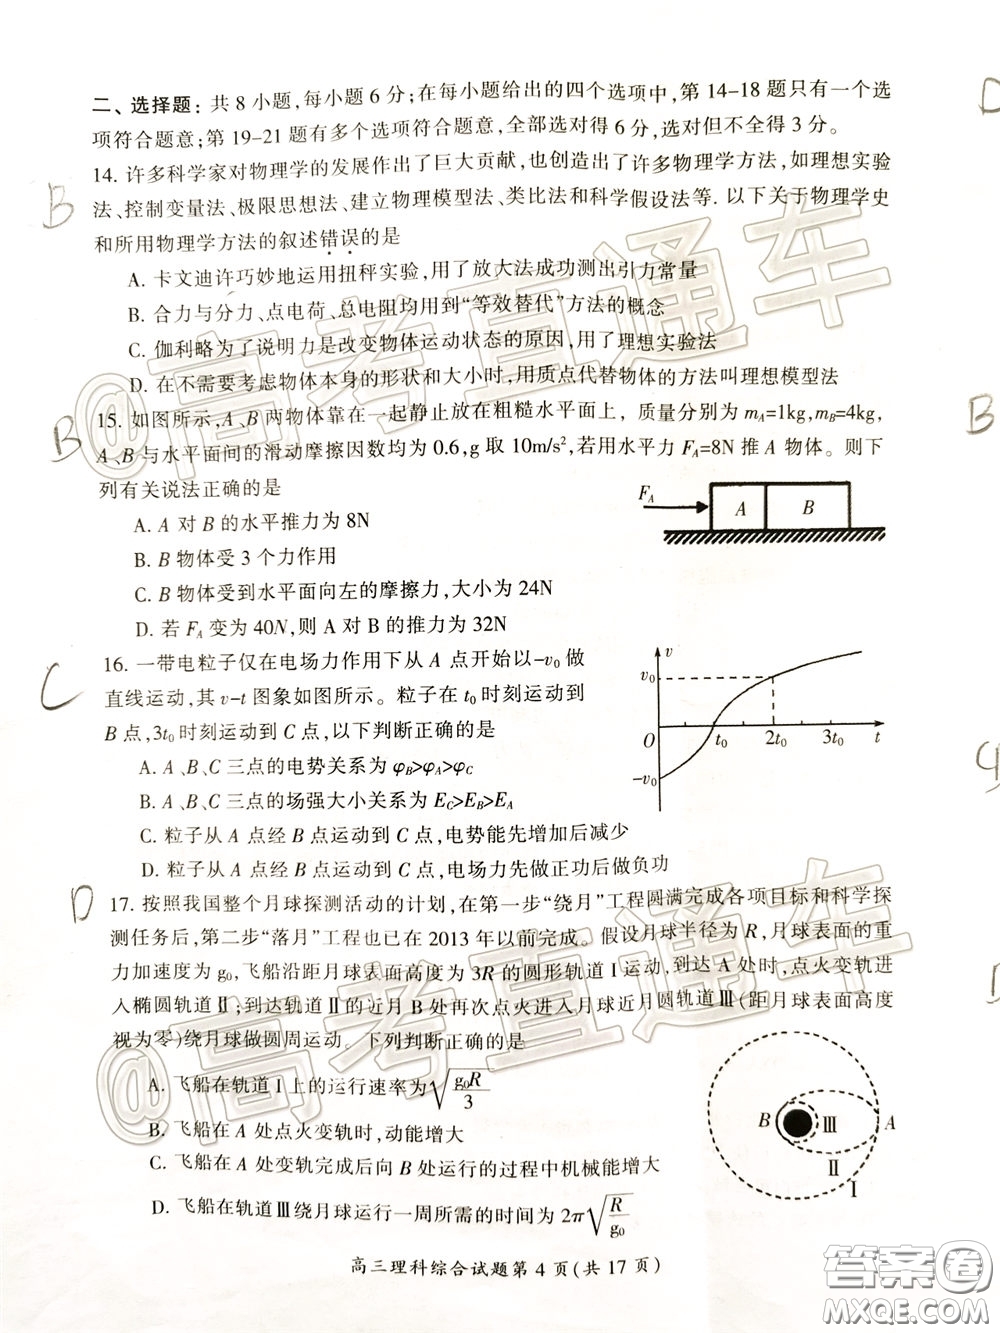 二、选择题：共8小题,每小题6分;在每小题给出的四个选项中,第14-18题只有一个选
项符合题意;第19-21题有多个选项符合题意,全部选对得6分,选对但不全得3分。
B
14. 许多科学家对物理学的发展作出了巨大贡献,也创造出了许多物理学方法,如理想实验
法、控制变量法、极限思想法、建立物理模型法、类比法和科学假设法等. 以下关于物理学史
和所用物理学方法的叙述错误的是
A. 卡文迪许巧妙地运用扭秤实验,用了放大法成功测出引力常量
B. 合力与分力、点电荷、总电阻均用到“等效替代”方法的概念
C. 伽利略为了说明力是改变物体运动状态的原因,用了理想实验法
D. 在不需要考虑物体本身的形状和大小时,用质点代替物体的方法叫理想模型法
B
15. 如图所示,A、B两物体靠在一起静止放在粗糙水平面上，质量分别为mA=1kg,mB=4kg,
A、B与水平面间的滑动摩擦因数均为0.6,g取10m/s²,若用水平力FA=8N推A物体。则下
列有关说法正确的是
A. A对B的水平推力为8N
B. B物体受3个力作用
C. B物体受到水平面向左的摩擦力,大小为24N
D. 若FA变为40N,则A对B的推力为32N
FA
A
B
C
16. 一带电粒子仅在电场力作用下从A点开始以-v0做
直线运动,其v-t图象如图所示。粒子在t0时刻运动到
B点,3t0时刻运动到C点,以下判断正确的是
A. A、B、C三点的电势关系为φB>φA>φC
B. A、B、C三点的场强大小关系为EC>EB>EA
C. 粒子从A点经B点运动到C点,电势能先增加后减少
D. 粒子从A点经B点运动到C点,电场力先做正功后做负功
v
v0
O
t0
2t0
3t0
t
-v0
D
17. 按照我国整个月球探测活动的计划,在第一步“绕月”工程圆满完成各项目标和科学探
测任务后,第二步“落月”工程也已在2013年以前完成。假设月球半径为R,月球表面的重
力加速度为g0,飞船沿距月球表面高度为3R的圆形轨道Ⅰ运动,到达A处时,点火变轨进
入椭圆轨道Ⅱ,到达轨道Ⅱ的近月B处再次点火进入月球近月圆轨道Ⅲ(距月球表面高度
视为零)绕月球做圆周运动。下列判断正确的是
A. 飞船在轨道Ⅰ上的运行速率为√(g0R/3)
B. 飞船在A处点火变轨时,动能增大
C. 飞船在A处变轨完成后向B处运行的过程中机械能增大
D. 飞船在轨道Ⅲ绕月球运行一周所需的时间为2π√(R/g0)
B
Ⅲ
A
Ⅱ
Ⅰ
高三理科综合试题第4页(共17页)
@高考直通车
@高考直通车
答案圈
MXQE.COM